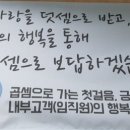 사랑을 덧셈으로 받고
의 행복을 통해
셈으로 보답하겠
곱셈으로 가는 첫걸음,
내부고객(임직원)의 행복